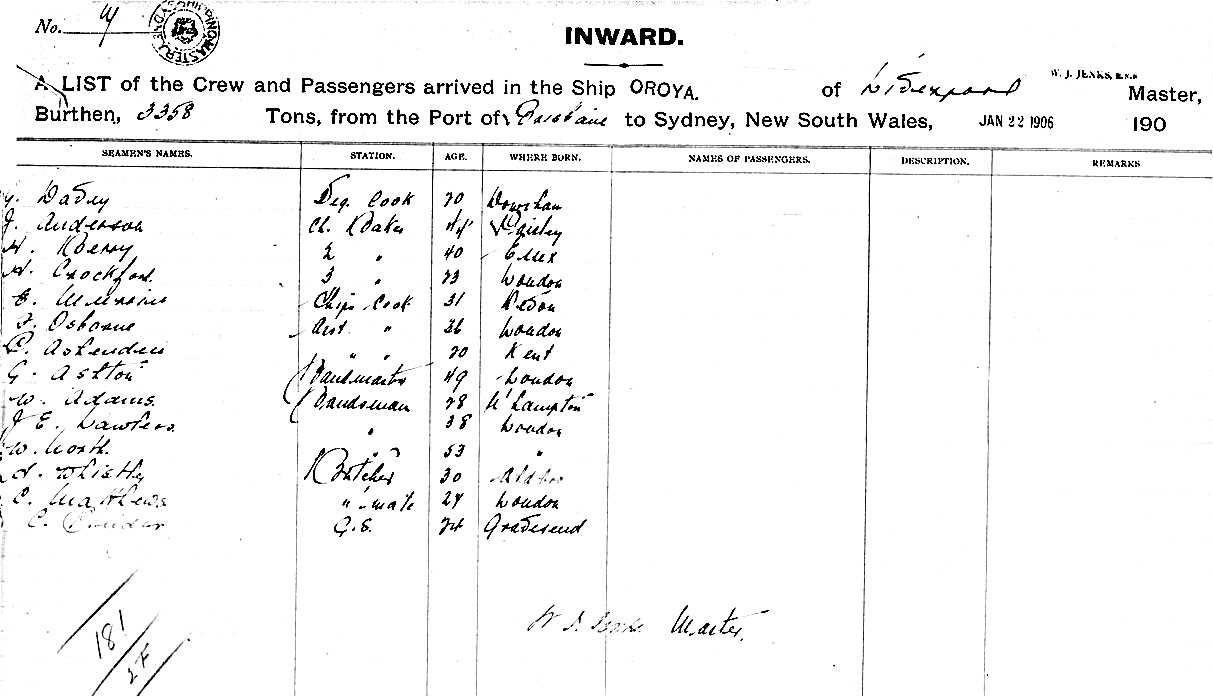 No. 4
INWARD.
A LIST of the Crew and Passengers arrived in the Ship OROYA. of Liverpool W. J. JENKS, R.N.R Master,
Burthen, 3358 Tons, from the Port of Brisbane to Sydney, New South Wales, JAN 22 1906 190
SEAMEN'S NAMES. STATION. AGE. WHERE BORN. NAMES OF PASSENGERS. DESCRIPTION. REMARKS
Cook 20
J. Anderson Ch. Baker 44 Paisley
H. Berry 2 " 40 Essex
H. Crockford. 3 " 23 London
E. Ships Cook 31 Devon
F. Osborne Asst " 26 London
C. Ashenden " " 20 Kent
G. Ashton Bandmaster 49 London
W. Adams. Bandsman 28 W'hampton
J. E. Lawless. " 38 London
W. North. " 53 "
Butcher 30
C. Matthews " mate 24 London
C. G.S. 24 Gravesend
181
27
W J. Jenks Master.